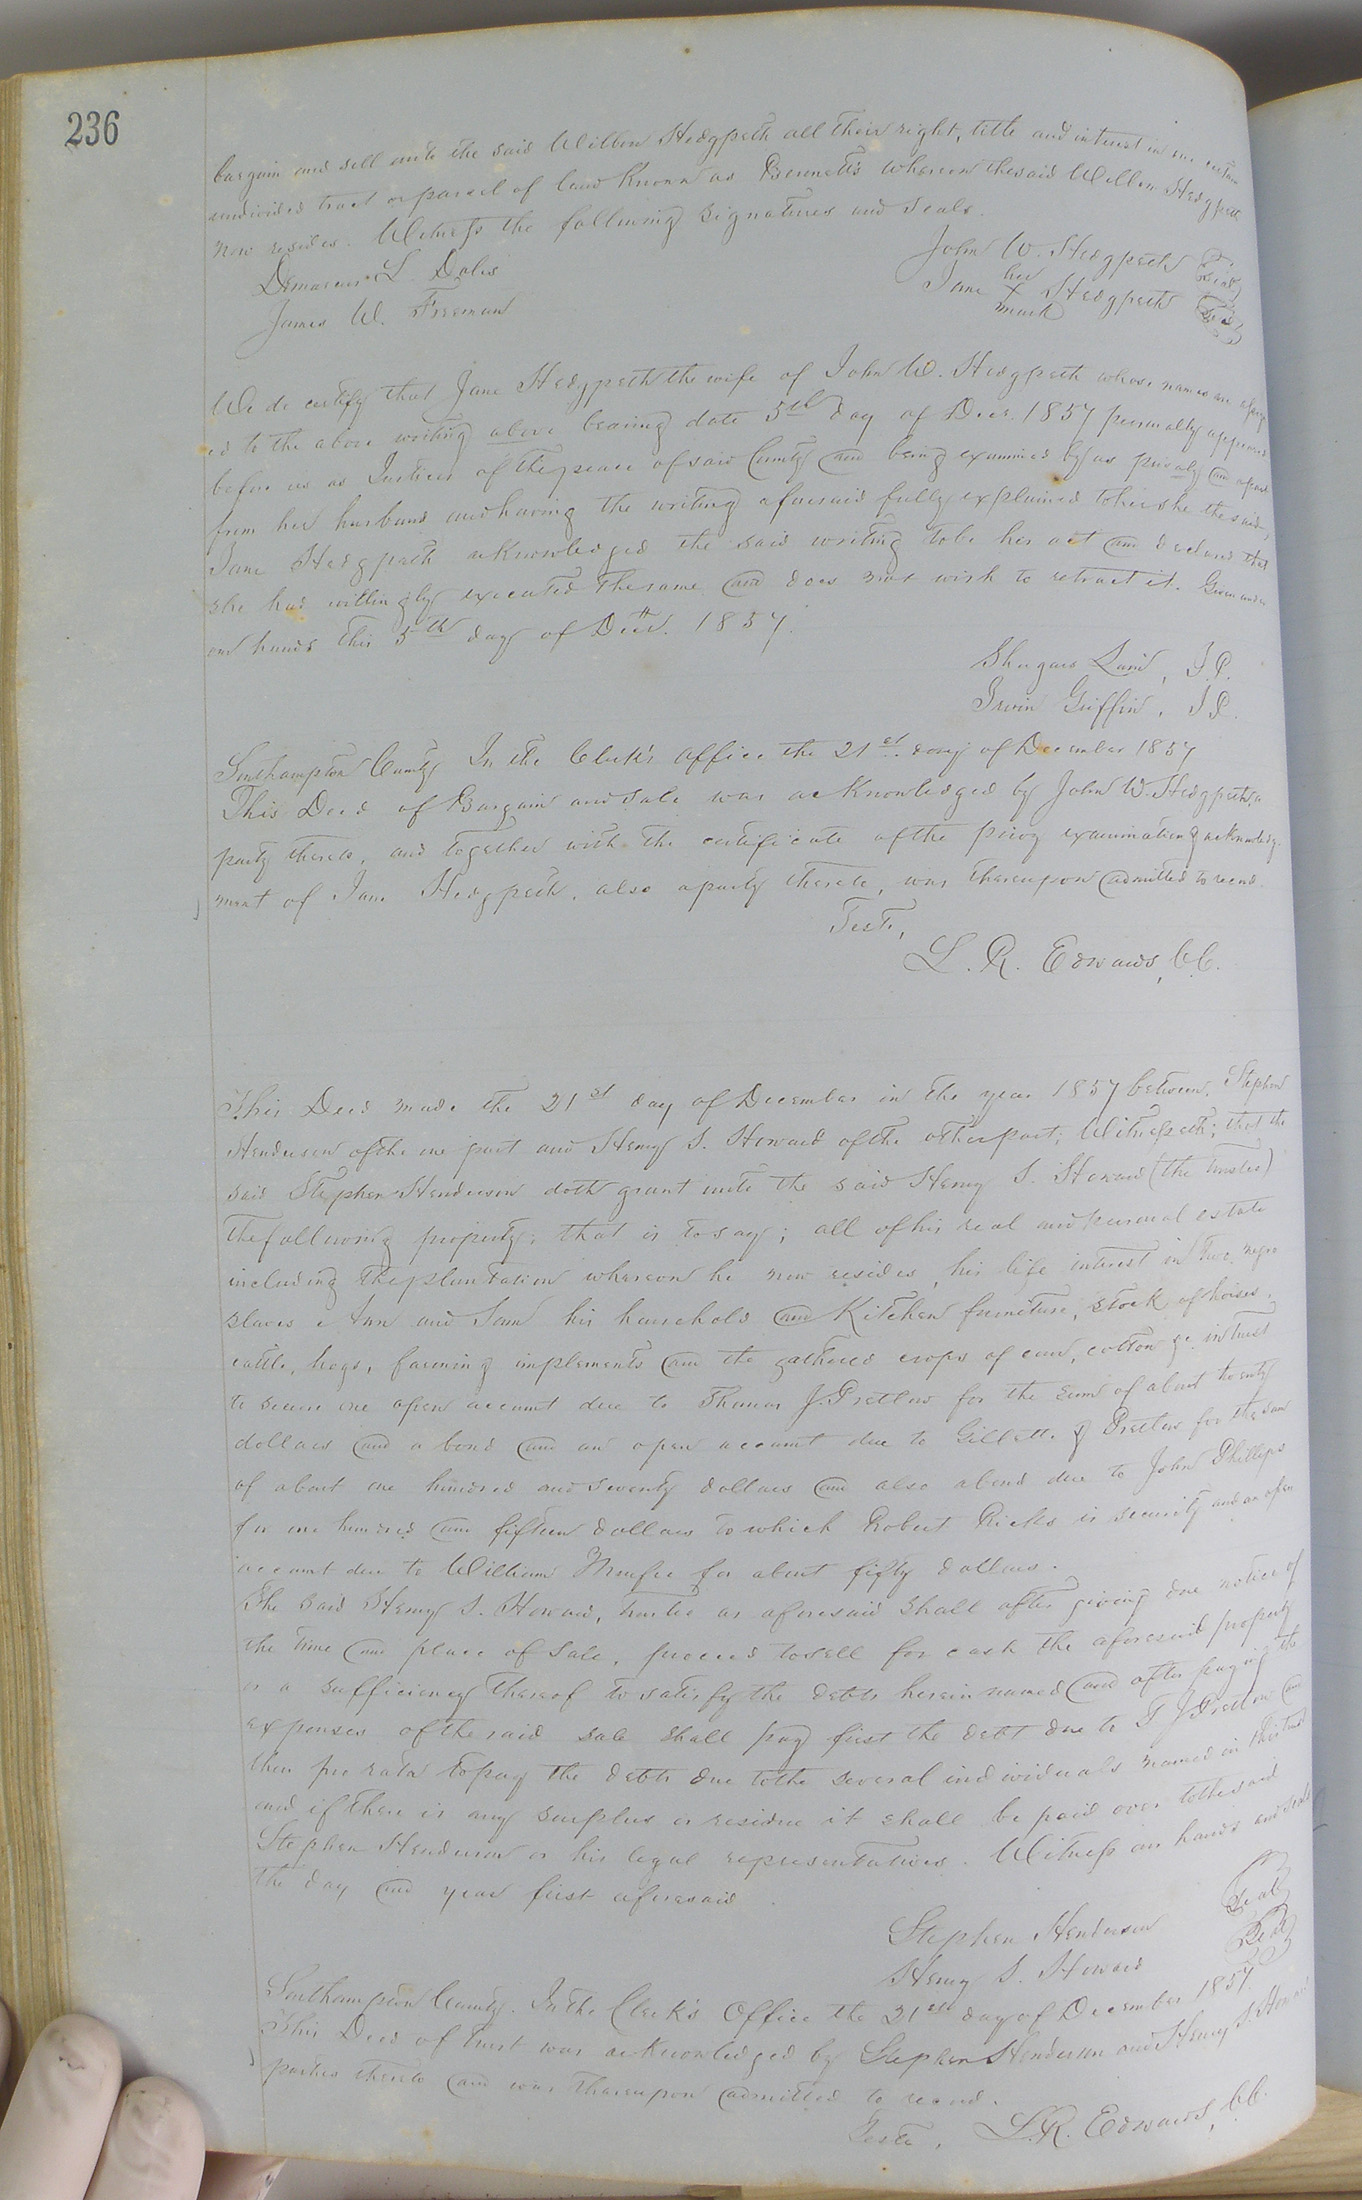 236
bargain and sell unto the said Wilbon Hedgpeth all their right, title and interest in one certain
undivided tract or parcel of land known as Bennett's whereon the said Wilbon Hedgpeth
now resides. Witness the following signatures and seals.
John W. Hedgpeth Seal
Jane her x mark Hedgpeth Seal
L. Dales
James W. Freeman
We do certify that Jane Hedgpeth the wife of John W. Hedgpeth whose names are affix
ed to the above writing above bearing date 5th day of Decr. 1857 personally appeared
before us as Justices of the peace of said County and being examined by us privaly and apart
from her husband and having the writing aforesaid fully explained to her she the said
Jane Hedgpeth acknowledged the said writing to be her act and declared that
she had willingly executed the same and does not wish to retract it. Given under
our hands this 5th day of Decr. 1857.
Shugars Lain, J.P.
Irvin Griffin, J.P.
Southampton County In the Clerk's office the 21st day of December 1857
This Deed of Bargain and Sale was acknowledged by John W. Hedgpeth, a
party thereto, and together with the certificate of the privy examination & acknowledg-
ment of Jane Hedgpeth, also a party thereto, was thereupon admitted to record.
Teste,
L. R. Edwards, C.C.
This Deed made the 21st day of December in the year 1857 between, Stephen
Henderson of the one part and Henry S. Howard of the other part; Witnesseth; that the
said Stephen Henderson doth grant unto the said Henry S. Howard (the trustee)
the following property; that is to say; all of his real and personal estate
including the plantation whereon he now resides, his life interest in two negro
slaves Ann and Sam his household and Kitchen furniture, stock of horses,
cattle, hogs, farming implements and the gathered crops of corn, cotton &c. in trust
to secure one open account due to Thomas J. Pretlow for the sum of about twenty
dollars and a bond and an open account due to Gillette & Pretlow for the sum
of about one hundred and seventy dollars and also a bond due to John Phillips
for one hundred and fifteen dollars to which Robert Ricks is security and an open
account due to William for about fifty dollars.
The said Henry S. Howard, trustee as aforesaid shall after giving due notice of
the time and place of sale, proceed to sell for cash the aforesaid property
or a sufficiency thereof to satisfy the debts herein named and after paying the
expenses of the said sale shall pay first the debt due to T J Pretlow and
then pro rata to pay the debts due to the several individuals named in this trust
and if there is any surplus or residue it shall be paid over to the said
Stephen Henderson or his legal representatives. Witness our hands and seals
the day and year first aforesaid
Stephen Henderson Seal
Henry S. Howard Seal
Southampton County. In the Clerk's Office the 21st day of December 1857.
This Deed of trust was acknowledged by Stephen Henderson and Henry S. Howard
parties thereto and was thereupon admitted to record.
Teste, L.R. Edwards, C.C.